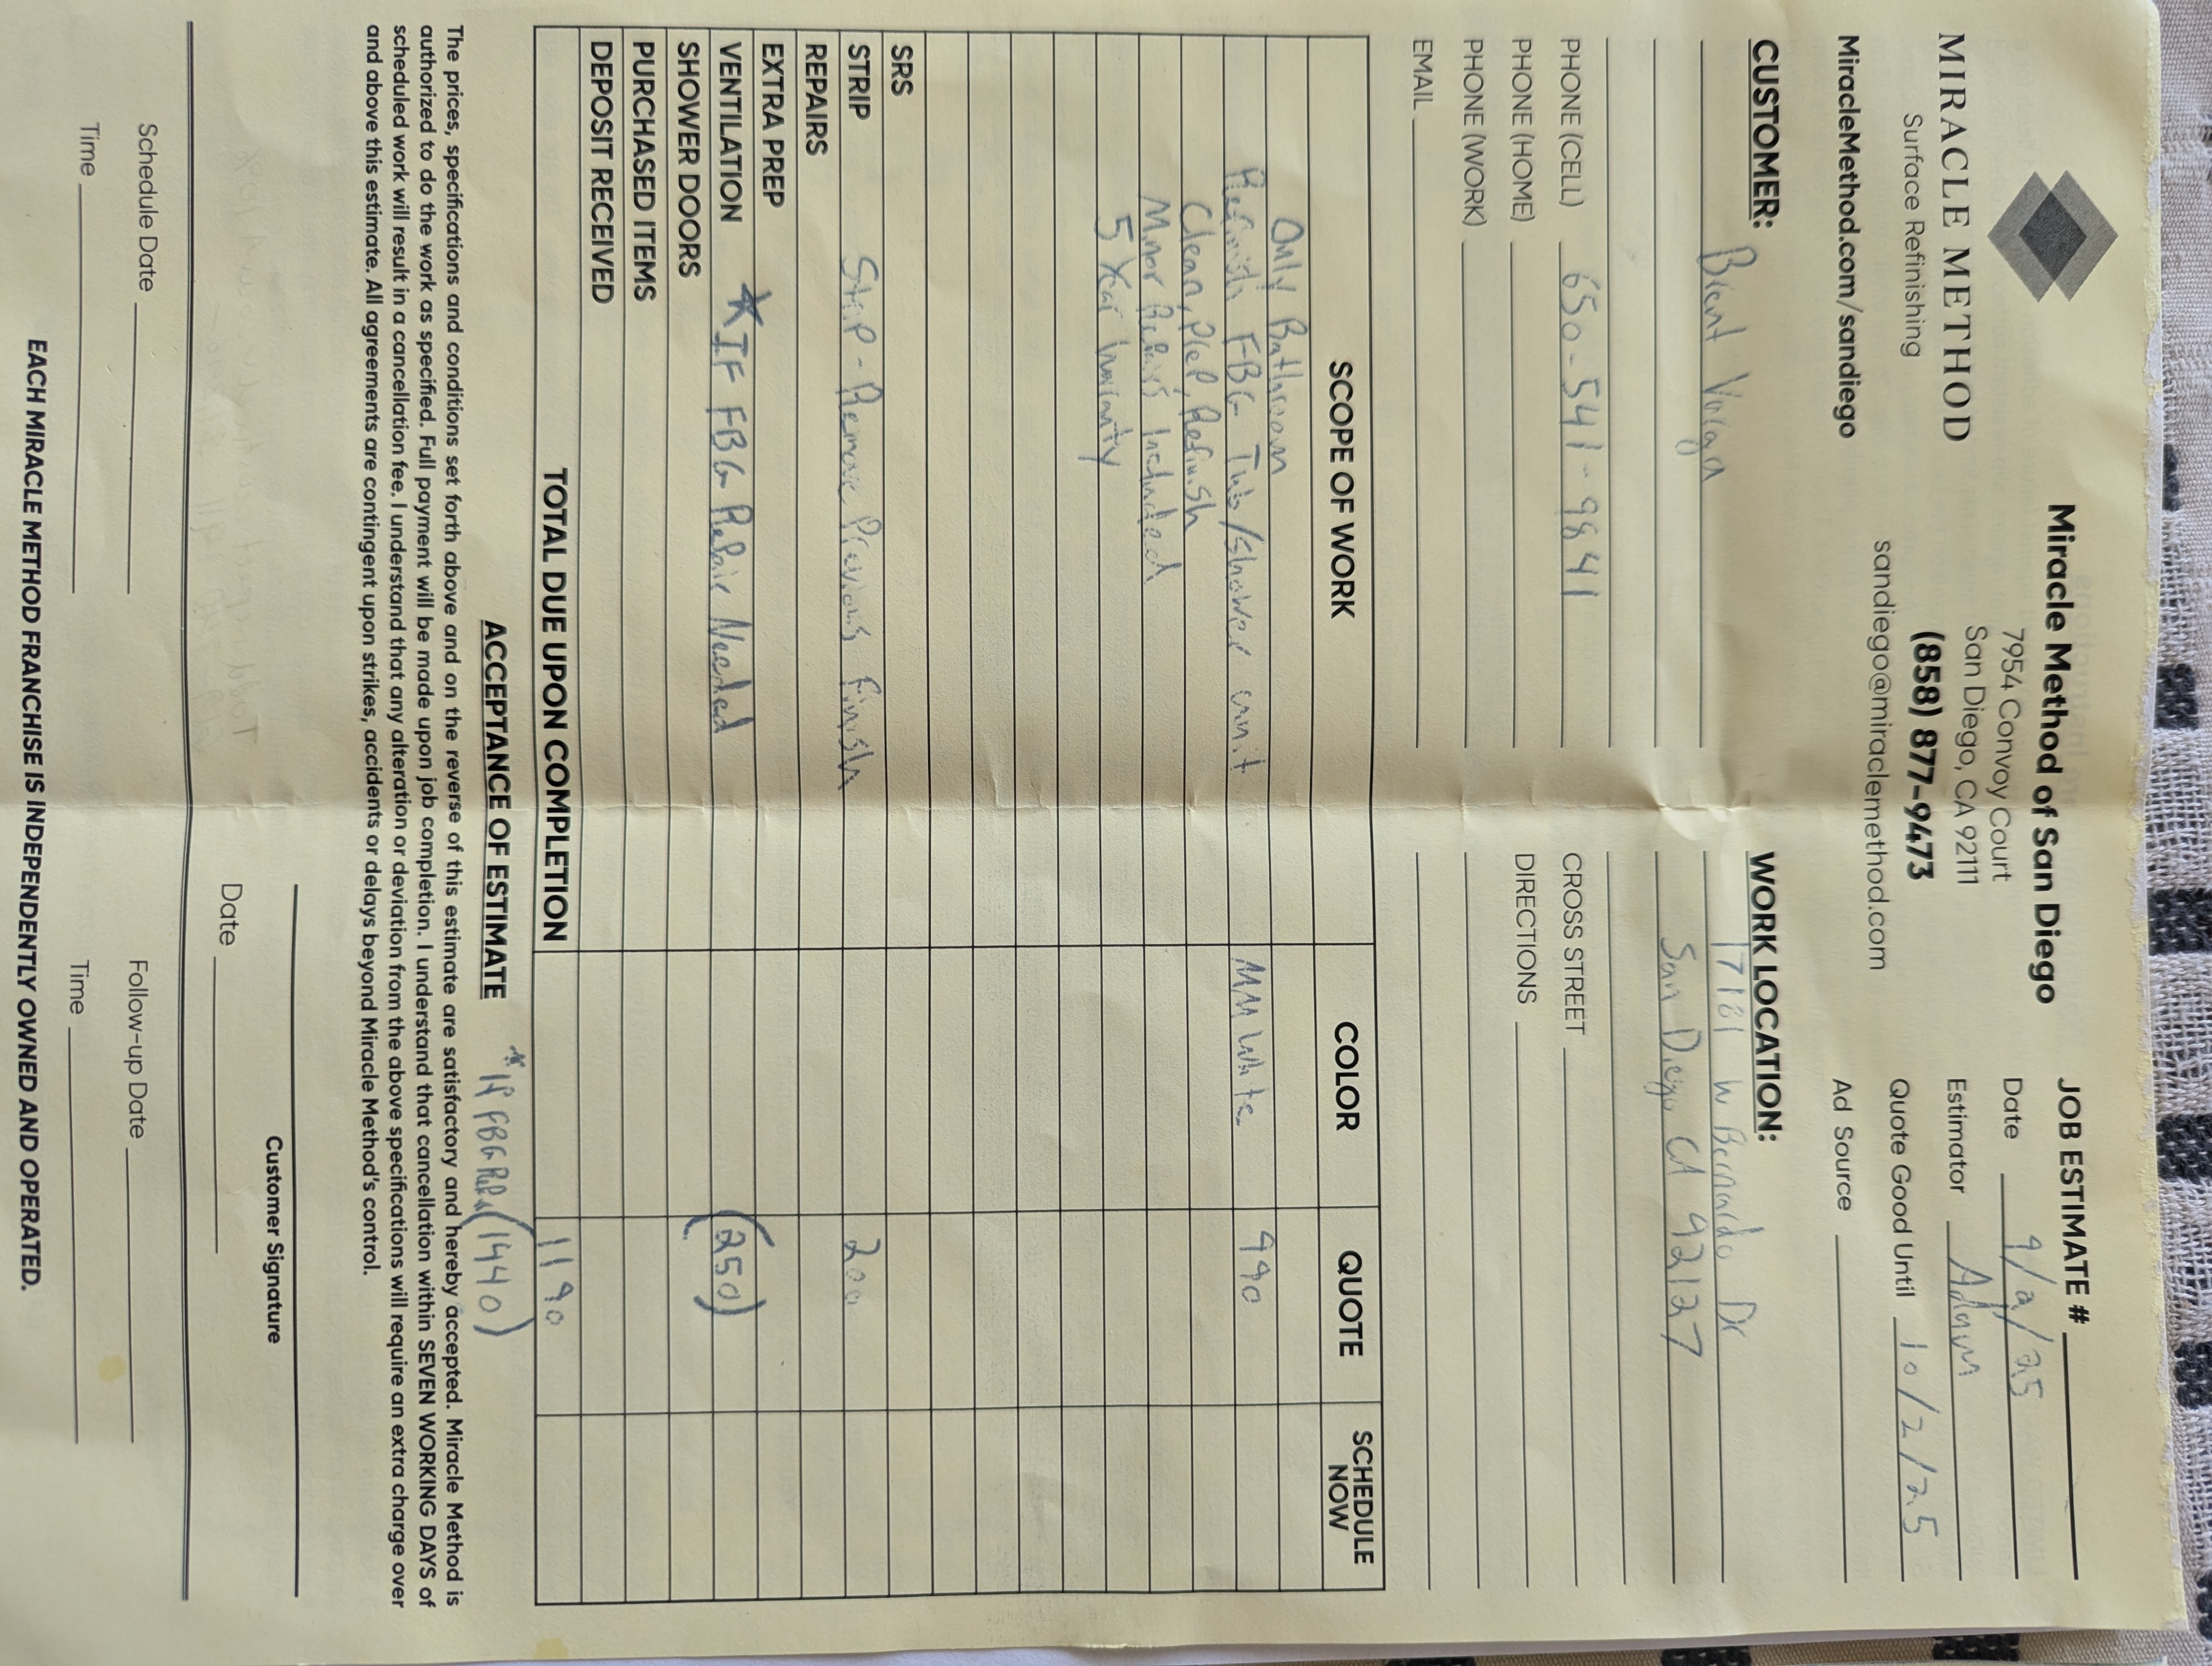 MIRACLE METHOD
Surface Refinishing
MiracleMethod.com/sandiego
Miracle Method of San Diego
7954 Convoy Court
San Diego, CA 92111
(858) 877-9473
sandiego@miraclemethod.com
JOB ESTIMATE #
Date 9/2/25
Estimator Adam
Quote Good Until 10/2/25
Ad Source
CUSTOMER:
Brent Varga
PHONE (CELL) 650-541-9841
PHONE (HOME)
PHONE (WORK)
EMAIL
WORK LOCATION:
17181 W Bernardo Dr
San Diego CA 92127
CROSS STREET
DIRECTIONS
SCOPE OF WORK COLOR QUOTE SCHEDULE NOW
Only Bathroom
Refinish FBG Tub/Shower unit MM White 990
Clean, Prep, Refinish
Minor Repairs Included
5 Year Warranty
SRS
STRIP Strip - Remove Previous Finish 200
REPAIRS
EXTRA PREP
VENTILATION *IF FBG Repair Needed (250)
SHOWER DOORS
PURCHASED ITEMS
DEPOSIT RECEIVED
TOTAL DUE UPON COMPLETION 1190
ACCEPTANCE OF ESTIMATE *if FBG Repair (1440)
The prices, specifications and conditions set forth above and on the reverse of this estimate are satisfactory and hereby accepted. Miracle Method is
authorized to do the work as specified. Full payment will be made upon job completion. I understand that cancellation within SEVEN WORKING DAYS of
scheduled work will result in a cancellation fee. I understand that any alteration or deviation from the above specifications will require an extra charge over
and above this estimate. All agreements are contingent upon strikes, accidents or delays beyond Miracle Method's control.
Customer Signature
Date
Schedule Date
Time
Follow-up Date
Time
EACH MIRACLE METHOD FRANCHISE IS INDEPENDENTLY OWNED AND OPERATED.